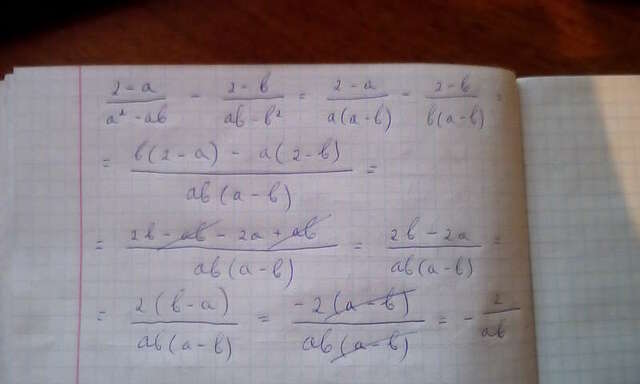 (2-a)/(a²-ab) - (2-b)/(ab-b²) = (2-a)/(a(a-b)) - (2-b)/(b(a-b)) =
= (b(2-a) - a(2-b))/(ab(a-b)) =
= (2b-ab-2a+ab)/(ab(a-b)) = (2b-2a)/(ab(a-b)) =
= (2(b-a))/(ab(a-b)) = (-2(a-b))/(ab(a-b)) = -2/(ab)